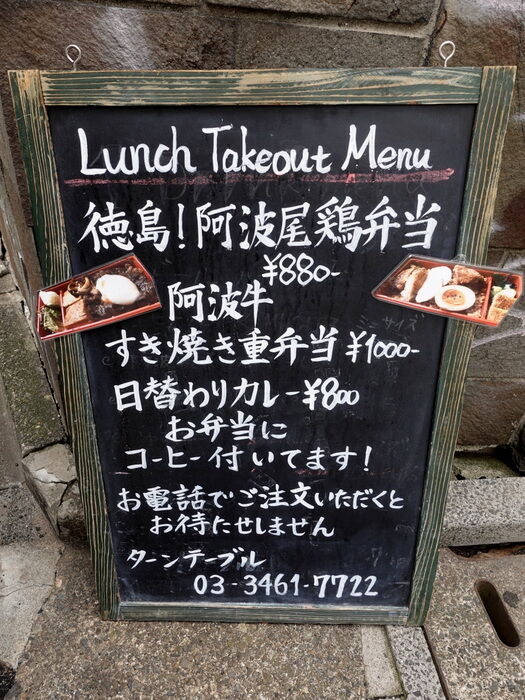 Lunch Takeout Menu
徳島!阿波尾鶏弁当
¥880-
阿波牛
すき焼き重弁当 ¥1000-
日替わりカレー¥800
お弁当に
コーヒー付いてます!
お電話でご注文いただくと
お待たせしません
ターンテーブル
03-3461-7722